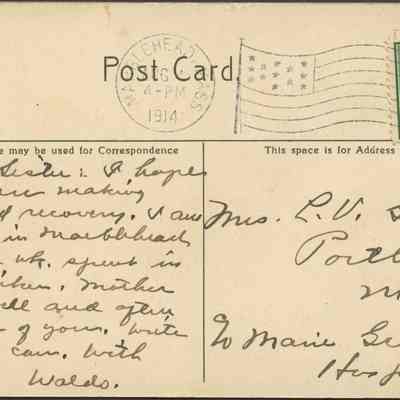 Post Card.
MARBLEHEAD MASS
4-PM
1914
e may be used for Correspondence
This space is for Address
Sister: I hope
are making
d recovery. I am
in Marblehead
wk. spent in
Mother
ell and often
of you. Write
can. With
Waldo.
Mrs. L. V.
Portl
M
℅ Maine Ge
Hosp